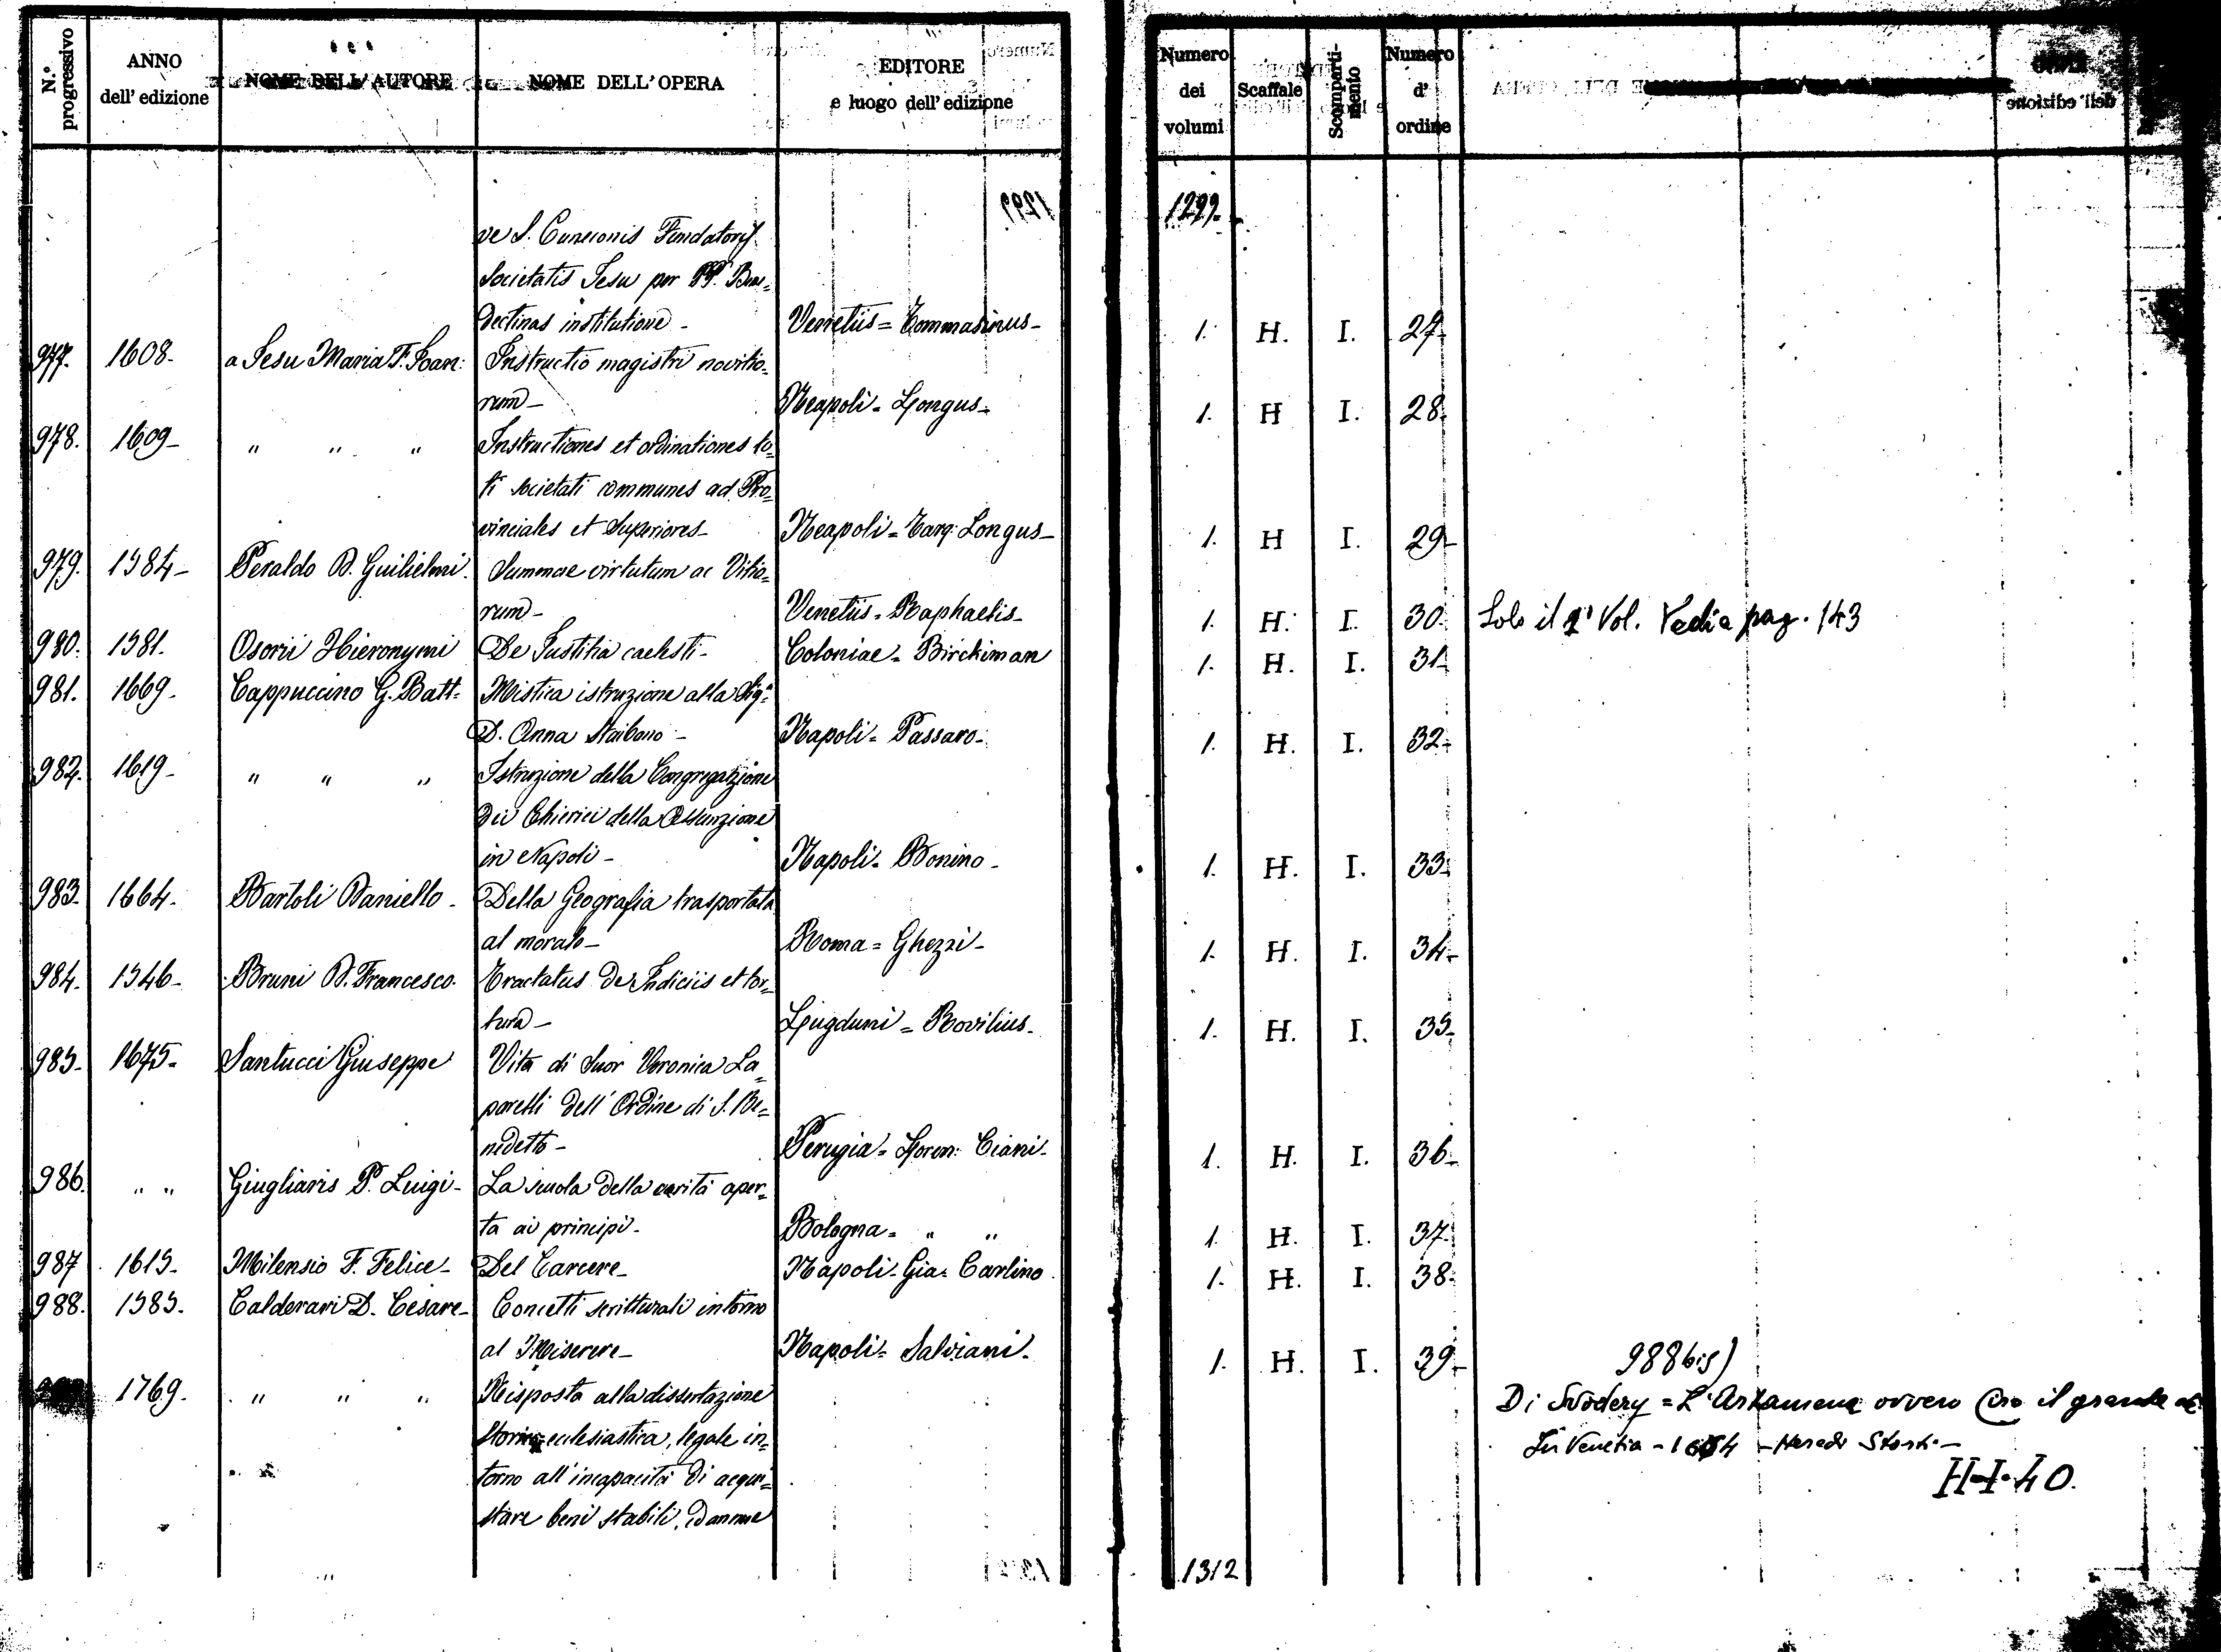 N.° progressivo | ANNO dell' edizione | NOME DELL'AUTORE | NOME DELL'OPERA | EDITORE e luogo dell' edizione | Numero dei volumi | Scaffale | Scomparti-mento | Numero d' ordine
1299-
ve S. Fundatoris
Societatis Jesu per PP. Bene=
dectinos institutione - Venetiis = Tommasinus - 1. H. I. 27-
977. 1608- a Jesu Maria F. Joan: Instructio magistri novitio=
rum - Neapoli = Longus - 1. H I. 28.
978. 1609- " " " Instructiones et ordinationes to=
ti societati communes ad Pro=
vinciales et Superiores - Neapoli = Tarq: Longus - 1. H I. 29-
979. 1584- Peraldo D. Guilielmi. Summae virtutum ac Vitio=
rum - Venetiis = Raphaelis - 1. H. I. 30. Solo il 2° Vol. Vedi a pag. 143
980. 1581. Osorii Hieronymi De Justitia caelesti - Coloniae = Birckiman 1. H. I. 31-
981. 1669- Cappuccino G. Batt= Mistica istruzione alla Sig.a
D. Anna Staibano - Napoli = Passaro - 1. H. I. 32-
982. 1619- " " " Istruzione della Congregazione
dei Chierici della Assunzione
in Napoli - Napoli = Bonino - 1. H. I. 33-
983- 1664- Bartoli Daniello - Della Geografia trasportata
al morale - Roma = Ghezzi - 1. H. I. 34-
984. 1546- Bruni D. Francesco. Tractatus de Indiciis et tor=
tura - Lugduni = Rovilius - 1. H. I. 35-
985- 1675- Santucci Giuseppe Vita di Suor Veronica La=
parelli dell' Ordine di S. Be=
nedetto - Perugia = Loren: Ciani - 1. H. I. 36-
986. " " Giugliaris P. Luigi - La scuola della verità aper=
ta ai principi - Bologna = " " 1. H. I. 37-
987 1615- Milensio F. Felice - Del Carcere - Napoli = Gia= Carlino 1. H. I. 38-
988. 1585- Calderari D. Cesare - Concetti scritturali intorno
al Miserere - Napoli = Salviani - 1. H. I. 39-
988 bis)
1769. " " " Risposta alla dissertazione
Di Scodery = L'Artamene ovvero Ciro il grande
storico ecclesiastica, legale in=
In Venetia - 1654 - Heredi Storti -
torno all' incapacità di acqui=
H-I-40.
stare beni stabili, dannue
1312